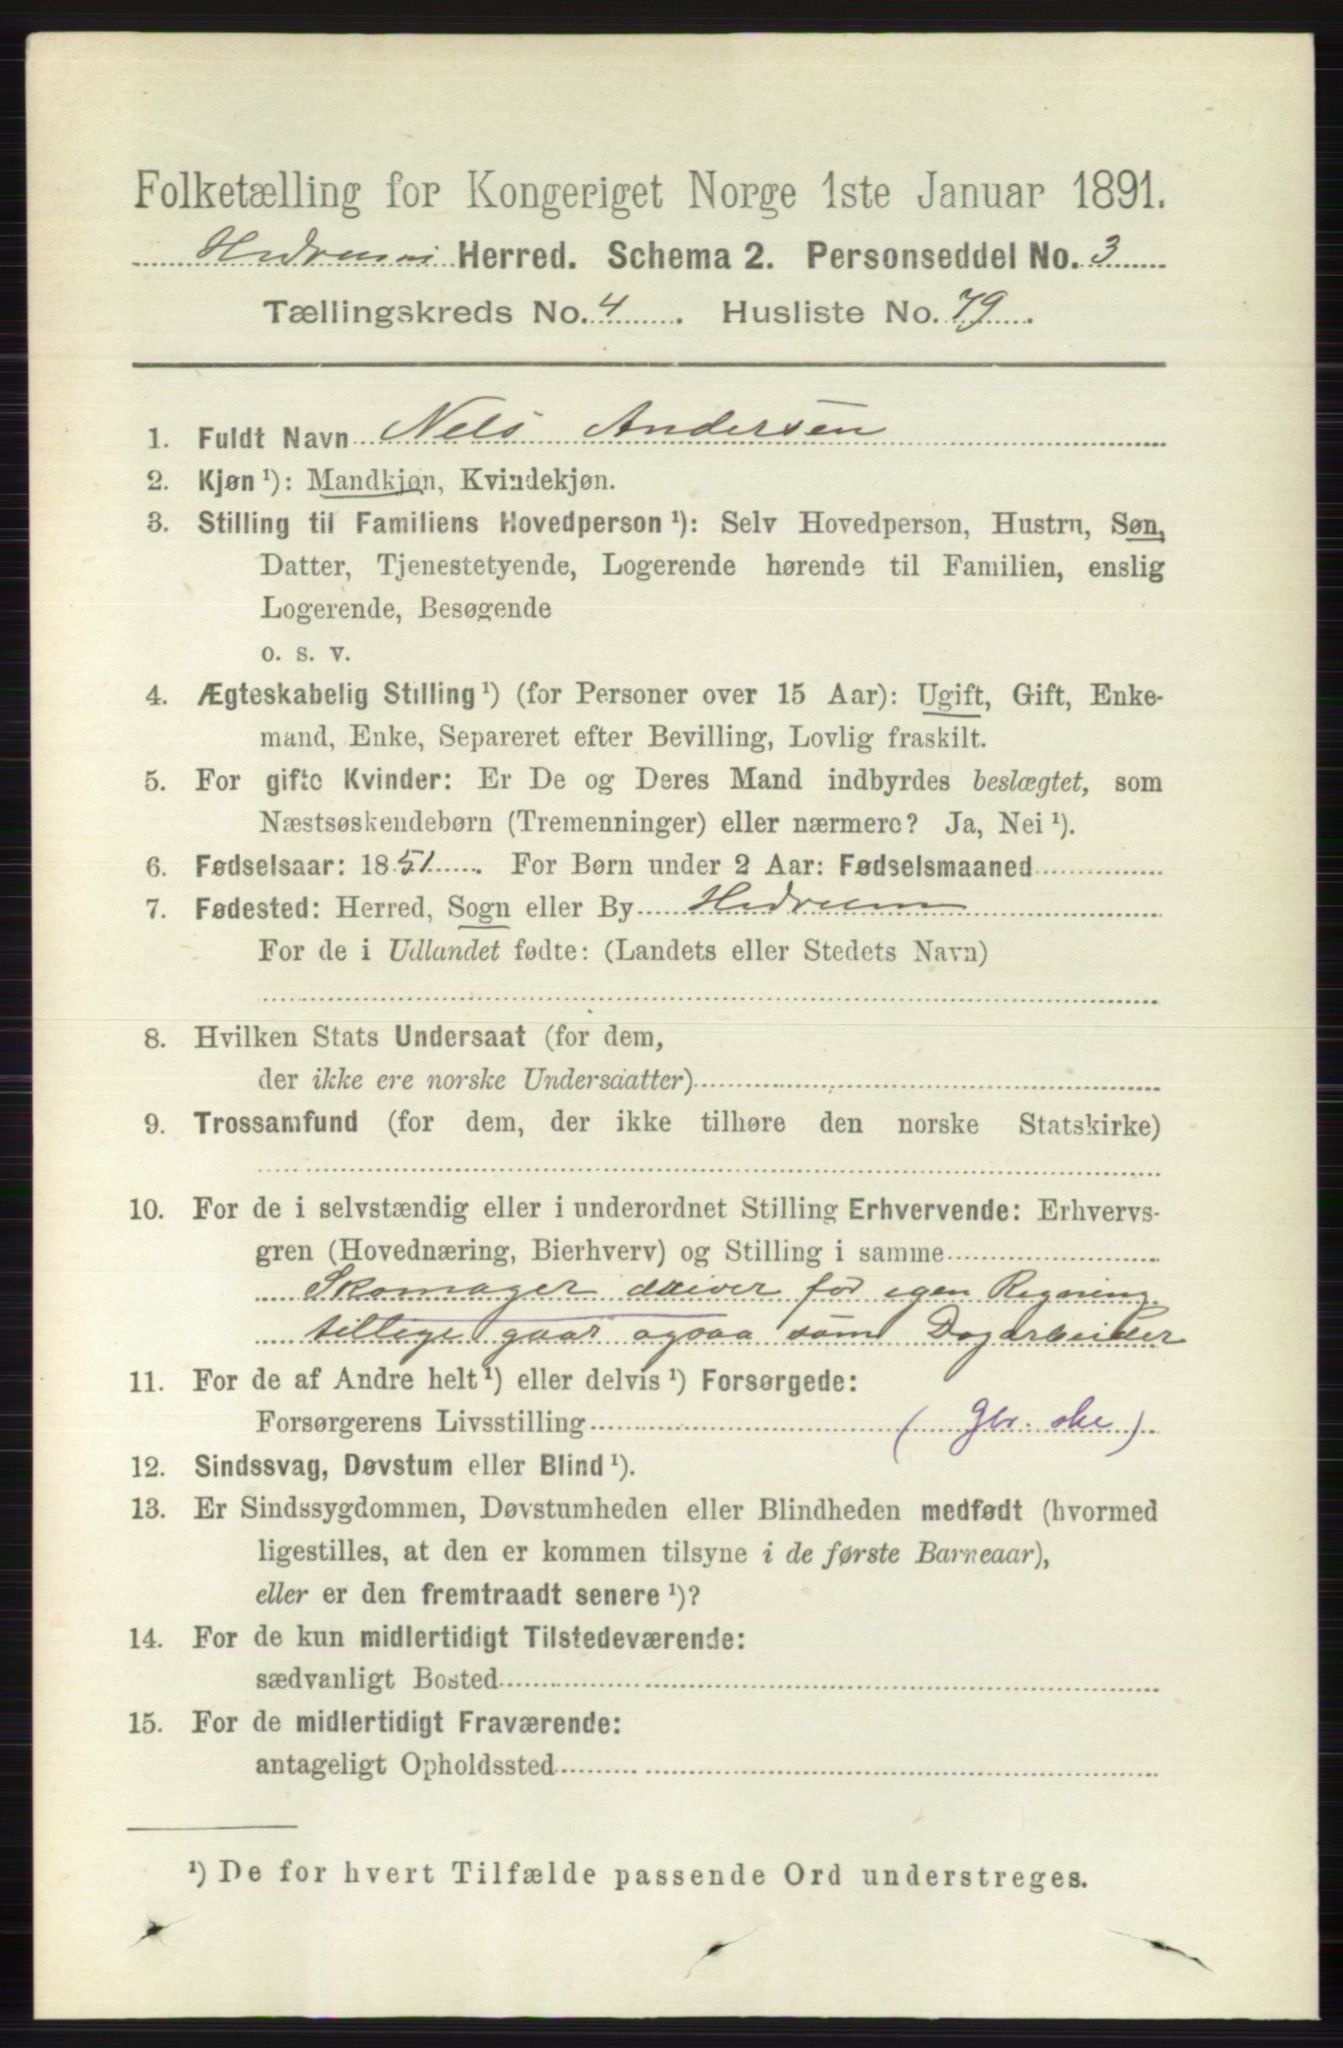 Folketælling for Kongeriget Norge 1ste Januar 1891.
Hedrum Herred. Schema 2. Personseddel No. 3
Tællingskreds No. 4. Husliste No. 79.
1. Fuldt Navn Nels Andersen
2. Kjøn ¹): Mandkjøn, Kvindekjøn.
3. Stilling til Familiens Hovedperson ¹): Selv Hovedperson, Hustru, Søn,
Datter, Tjenestetyende, Logerende hørende til Familien, enslig
Logerende, Besøgende
o. s. v.
4. Ægteskabelig Stilling ¹) (for Personer over 15 Aar): Ugift, Gift, Enke-
mand, Enke, Separeret efter Bevilling, Lovlig fraskilt.
5. For gifte Kvinder: Er De og Deres Mand indbyrdes beslægtet, som
Næstsøskendebørn (Tremenninger) eller nærmere? Ja, Nei ¹).
6. Fødselsaar: 1851. For Børn under 2 Aar: Fødselsmaaned
7. Fødested: Herred, Sogn eller By Hedrum
For de i Udlandet fødte: (Landets eller Stedets Navn)
8. Hvilken Stats Undersaat (for dem,
der ikke ere norske Undersaatter)
9. Trossamfund (for dem, der ikke tilhøre den norske Statskirke)
10. For de i selvstændig eller i underordnet Stilling Erhvervende: Erhvervs-
gren (Hovednæring, Bierhverv) og Stilling i samme
Skomager driver for egen Regning
tillige gaar ogsaa som Dagarbeider
11. For de af Andre helt ¹) eller delvis ¹) Forsørgede:
Forsørgerens Livsstilling
12. Sindssvag, Døvstum eller Blind ¹).
13. Er Sindssygdommen, Døvstumheden eller Blindheden medfødt (hvormed
ligestilles, at den er kommen tilsyne i de første Barneaar),
eller er den fremtraadt senere ¹)?
14. For de kun midlertidigt Tilstedeværende:
sædvanligt Bosted
15. For de midlertidigt Fraværende:
antageligt Opholdssted
¹) De for hvert Tilfælde passende Ord understreges.